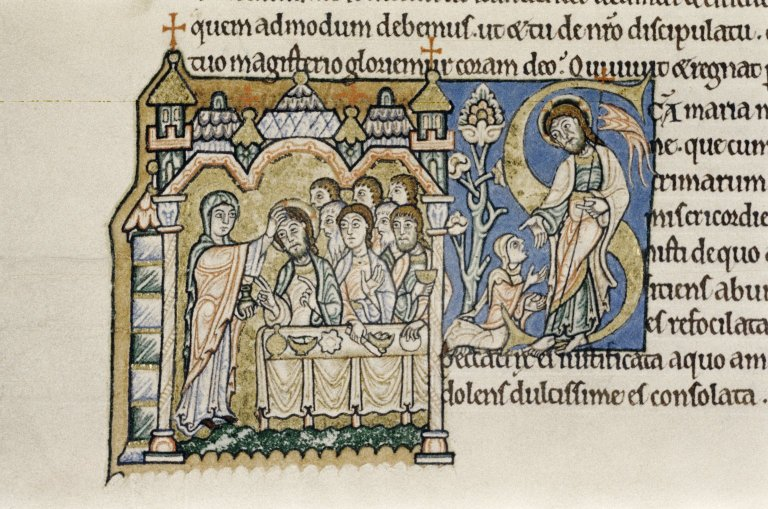 quem admodum debemus. ut & tu de nr̄o discipulatu.
tuo magisterio gloriemur coram deo. Qui uiuit & regnat
S CĀ maria
ne. que cum
crimarum
misericordie
risti de quo
sitiens abun
es refocilata
peccatrix et iustificata a quo am
dolens dulcissime es consolata.